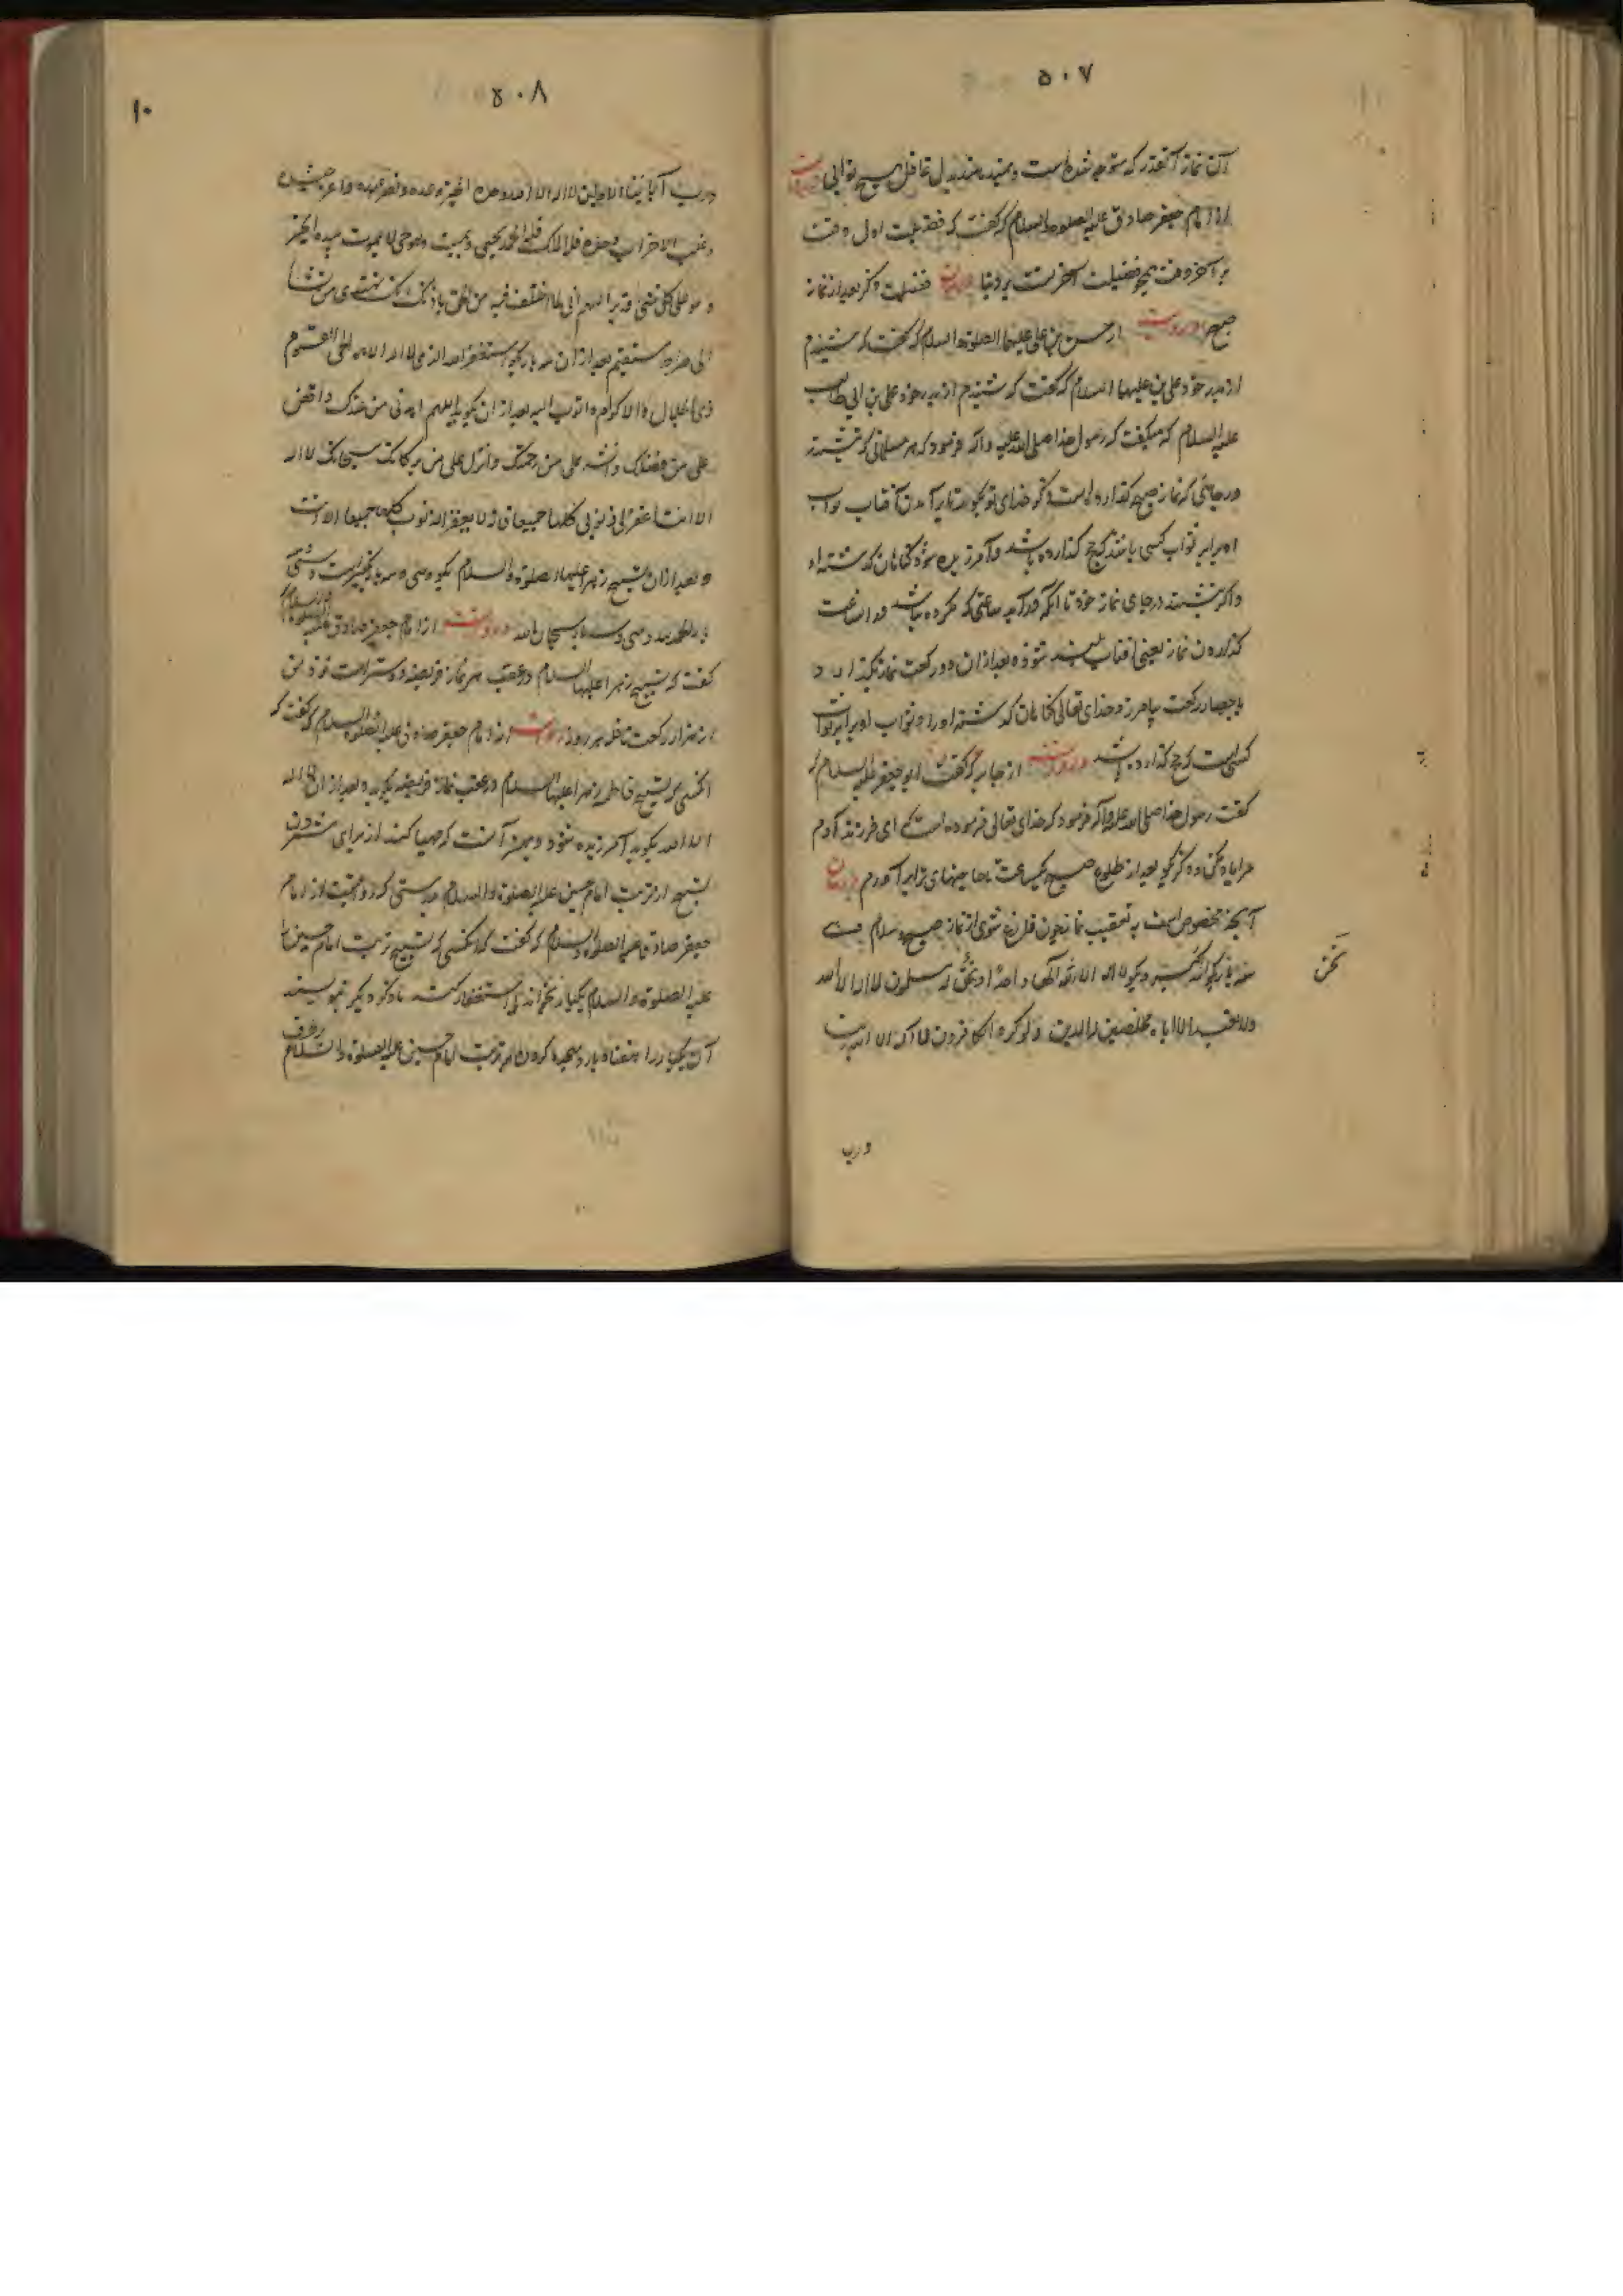 ٥٠٧
آن نماز آنقدر که متوجه شده است و نمیدهند بدل غافل هیچ ثوابی
از امام جعفر صادق علیه الصلوة والسلام که گفت که فضیلت اول وقت
بر آخر وقت همچو فضیلت آخرتست بر دنیا فضیلت ذکر بعد از نماز
صبح روایتست از حسن بن علی علیهما الصلوة والسلام که گفت که شنیدم
از پدر خود علی بن علیهما السلام که گفت که شنیدم از پدر خود علی بن ابی طالب
علیه السلام که میگفت که رسول خدا صلی الله علیه وآله فرمود که هر مسلمانی که بنشیند
در جایی که نماز صبح گذارده است و ذکر خدای تعالی گوید تا برآمدن آفتاب ثواب
او برابر ثواب کسی باشد که حج گذارده باشد و آمرزیده شود گناهان گذشته او
و اگر بنشیند در جای نماز خود تا آنکه درآید ساعتی که مکروه باشد در آن ساعت
گذاردن نماز یعنی آفتاب بلند شود و بعد از آن دو رکعت نماز بگذارد
یا چهار رکعت بیامرزد خدای تعالی گناهان گذشته او را و ثواب او برابر ثواب
کسیست که حج گذارده باشد و روایتست از جابر که گفت ابو جعفر علیه السلام که
گفت رسول خدا صلی الله علیه وآله فرمود که خدای تعالی فرموده است که ای فرزند آدم
مرا یاد کن و ذکر گو بعد از طلوع صبح یکساعت تا حاجتهای ترا برآورم
آنچه مخصوص است به تعقیب نماز چون فارغ شوی از نماز صبح و سلام دهی
سه بار بگو الله اکبر و بگو لا اله الا الله الها واحدا ونحن له مسلمون لا اله الا الله
ولا نعبد الا ایاه مخلصین له الدین ولو کره الکافرون لا اله الا الله ربنا
نحن
ورب
٥٠٨
١٠
ورب آبائنا الاولین لا اله الا الله وحده انجز وعده ونصر عبده واعز جنده
وغلب الاحزاب وحده فله الملک وله الحمد یحیی ویمیت وهو حی لا یموت بیده الخیر
وهو علی کل شیء قدیر اللهم اهدنی لما اختلف فیه من الحق باذنک انک تهدی من تشاء
الی صراط مستقیم بعد از آن سه بار بگو استغفر الله الذی لا اله الا هو الحی القیوم
ذی الجلال والاکرام واتوب الیه بعد از آن بگوید اللهم اهدنی من عندک وافض
علی من فضلک وانشر علی من رحمتک وانزل علی من برکاتک سبحانک لا اله
الا انت اغفر لی ذنوبی کلها جمیعا فانه لا یغفر الذنوب کلها جمیعا الا انت
و بعد از آن تسبیح زهرا علیها الصلوة والسلام بگو و سی و سه بار تکبیر است و سی و سه
بار الحمد لله و سی و سه بار سبحان الله و روایتست از امام جعفر صادق علیه الصلوة والسلام
گفت که تسبیح زهرا علیها السلام در عقب هر نماز فریضه دوستر است نزد من
از هزار رکعت نافله هر روز روایتست از امام جعفر صادق علیه الصلوة والسلام که گفت که
آنکسی که تسبیح فاطمه زهرا علیها السلام در عقب نماز فریضه بگوید و بعد از آن لا اله
الا الله بگوید آمرزیده شود و بهتر آنست که مهیا کند از برای شمردن
تسبیح از تربت امام حسین علیه الصلوة والسلام بدرستی که روایتست از امام
جعفر صادق علیه الصلوة والسلام که گفت که آنکسی که تسبیح تربت امام حسین را
علیه الصلوة والسلام یکبار بگرداند و استغفار کند یا ذکر دیگر بنویسند
آن یکبار را هفتاد بار و سجده کردن بر تربت امام حسین علیه الصلوة والسلام